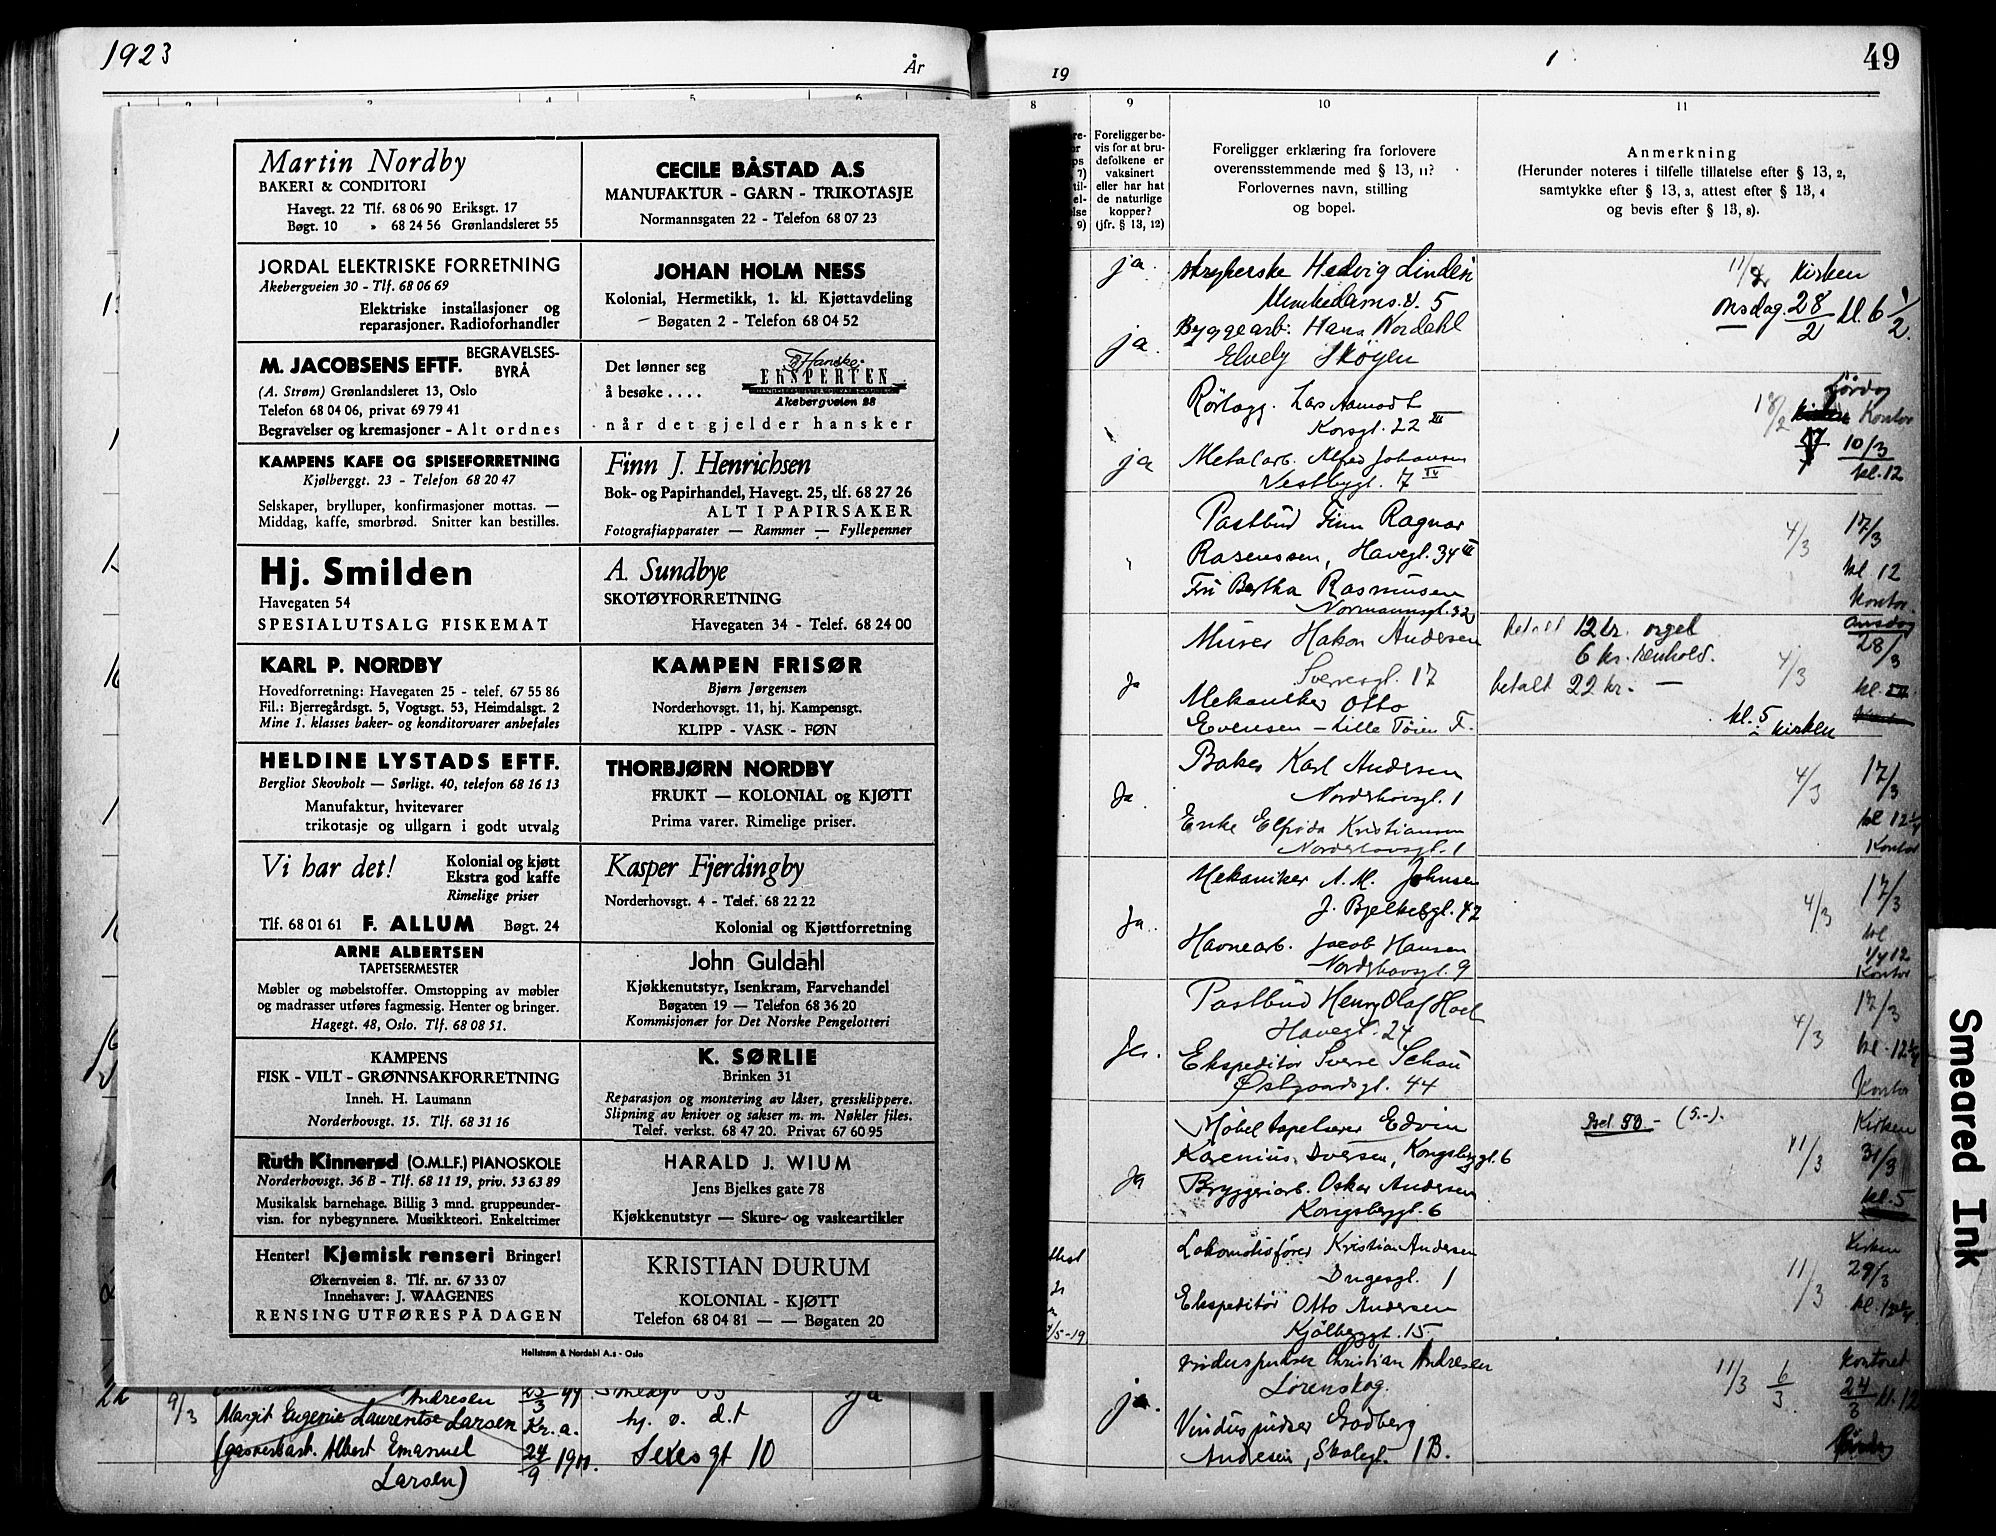 1923
År
19
49
Martin Nordby
BAKERI & CONDITORI
Havegt. 22 Tlf. 68 06 90 Eriksgt. 17
Bøgt. 10 „ 68 24 56 Grønlandsleret 55
CECILE BÅSTAD A.S
MANUFAKTUR - GARN - TRIKOTASJE
Normannsgaten 22 - Telefon 68 07 23
JORDAL ELEKTRISKE FORRETNING
Åkebergveien 30 - Tlf. 68 06 69
Elektriske installasjoner og
reparasjoner. Radioforhandler
JOHAN HOLM NESS
Kolonial, Hermetikk, 1. kl. Kjøttavdeling
Bøgaten 2 - Telefon 68 04 52
M. JACOBSENS EFTF. BEGRAVELSES-
BYRÅ
(A. Strøm) Grønlandsleret 13, Oslo
Telefon 68 04 06, privat 69 79 41
Begravelser og kremasjoner - Alt ordnes
Det lønner seg
å besøke . . . .
Hanske-
EKSPERTEN
Åkebergveien 28
når det gjelder hansker
KAMPENS KAFE OG SPISEFORRETNING
Kjølberggt. 23 - Telefon 68 20 47
Selskaper, brylluper, konfirmasjoner mottas. —
Middag, kaffe, smørbrød. Snitter kan bestilles.
Finn J. Henrichsen
Bok- og Papirhandel, Havegt. 25, tlf. 68 27 26
ALT I PAPIRSAKER
Fotografiapparater — Rammer — Fyllepenner
Hj. Smilden
Havegaten 54
SPESIALUTSALG FISKEMAT
A. Sundbye
SKOTØYFORRETNING
Havegaten 34 - Telef. 68 24 00
KARL P. NORDBY
Hovedforretning: Havegaten 25 - telef. 67 55 86
Fil.: Bjerregårdsgt. 5, Vogtsgt. 53, Heimdalsgt. 2
Mine 1. klasses baker- og konditorvarer anbefales
KAMPEN FRISØR
Bjørn Jørgensen
Norderhovsgt. 11, hj. Kampensgt.
KLIPP - VASK - FØN
HELDINE LYSTADS EFTF.
Bergliot Skovholt — Sørligt. 40, telefon 68 16 13
Manufaktur, hvitevarer
trikotasje og ullgarn i godt utvalg
THORBJØRN NORDBY
FRUKT — KOLONIAL og KJØTT
Prima varer. Rimelige priser.
Vi har det!
Kolonial og kjøtt
Ekstra god kaffe
Rimelige priser
Tlf. 68 01 61 F. ALLUM Bøgt. 24
Kasper Fjerdingby
Norderhovsgt. 4 - Telef. 68 22 22
Kolonial og Kjøttforretning
ARNE ALBERTSEN
TAPETSERMESTER
Møbler og møbelstoffer. Omstopping av møbler
og madrasser utføres fagmessig. Henter og bringer.
Hagegt. 48, Oslo. Tlf. 68 08 51.
John Guldahl
Kjøkkenutstyr, Isenkram, Farvehandel
Bøgaten 19 — Telefon 68 36 20
Kommisjonær for Det Norske Pengelotteri
KAMPENS
FISK - VILT - GRØNNSAKFORRETNING
Inneh. H. Laumann
Norderhovsgt. 15. Tlf. 68 31 16
K. SØRLIE
Brinken 31
Reparasjon og montering av låser, gressklippere.
Slipning av kniver og sakser m. m. Nøkler files.
Telef. verkst. 68 47 20. Privat 67 60 95
Ruth Kinnerød (O.M.L.F.) PIANOSKOLE
Norderhovsgt. 36 B - Tlf. 68 11 19, priv. 53 63 89
Musikalsk barnehage. Billig 3 mnd. gruppeunder-
visn. for nybegynnere. Musikkteori. Enkelttimer
HARALD J. WIUM
Jens Bjelkes gate 78
Kjøkkenutstyr — Skure- og vaskeartikler
Henter! Kjemisk renseri Bringer!
Økernveien 8. Tlf. nr. 67 33 07
Innehaver: J. WAAGENES
RENSING UTFØRES PÅ DAGEN
KRISTIAN DURUM
KOLONIAL - KJØTT
Telefon 68 04 81 — — Bøgaten 20
Hellstrøm & Nordahl A.s - Oslo
Andresen
9/3
Margit Eugenie Laurentse Larsen Kr.a.
Albert Emanuel 24/9 1900.
Larsen)
hj. v. d.t
10
8
9
10
11
Foreligger be-
vis for at bru-
defolkene er
vaksinert
eller har hat
de naturlige
kopper?
(jfr. § 13, 12)
Foreligger erklæring fra forlovere
overensstemmende med § 13, 11?
Forlovernes navn, stilling
og bopel.
Anmerkning
(Herunder noteres i tilfelle tillatelse efter § 13, 2,
samtykke efter § 13, 3, attest efter § 13, 4
og bevis efter § 13, 8).
ja. strykerske Hedvig Linden
Munkedams.v. 5
Kirken
onsdag 28/2 kl. 6 1/2.
ja. Byggearb. Hans Nordahl
Elvely Skøyen
Rørlægg. Lars Aamodt
Korsgt. 22 III
Lørdag
Kontor
10/3
kl. 12
ja Metalarb. Alfred Johansen
Vestbygt. 7 IV
Postbud Finn Ragnar
Havegt. 34 III
Fru Bertha Rasmussen
Normannsgt. 32
4/3
17/3
kl 12
Kontor.
Murer Hakon Andersen
Sverresgt. 17
betalt 12 kr. orgel
6 kr. renhold.
betalt 22 kr. —
4/3
onsdag
28/3
kl. 5 kirken
Ja Mekaniker Otto
Evensen - Lille Tøien F.
Baker Karl Andersen
Nordrhovsgt. 1
4/3
17/3
Kontor
Ja. Enke Elfrida Kristiansen
Nordrhovsgt. 1
Mekaniker A. M. Johnsen
J. Bjelkesgt. 42
4/3
17/3
kl
1/4 12
Kontor
Ja. Havnearb. Jacob Hansen
Nordrhovsgt. 9
Postbud Henry Olaf Hoel
Havegt. 24
4/3
17/3
Kontor
Ja. Ekspeditør Sverre Schau
Østgaardsgt. 44
Møbeltapetserer Edvin
Karenius Iversen, Kongsbggt. 6
Bet. 50.- (5.-).
11/3
Kirken
31/3
kl. 5
Ja Bryggeriarb. Oskar Andersen
Kongsbggt. 6
Lokomotivfører Kristian Andersen
Dugesgt. 1
11/3
Kirken
29/3
Ekspeditør Otto Andersen
Kjølberggt. 15.
1/5-19
vinduspudser Christian Andresen
Lørenskog.
11/3
6/3
Kontoret
24/3 kl. 12
ja. Vinduspudser Godberg
Andresen, Skolegt. 1 B.
Smeared Ink